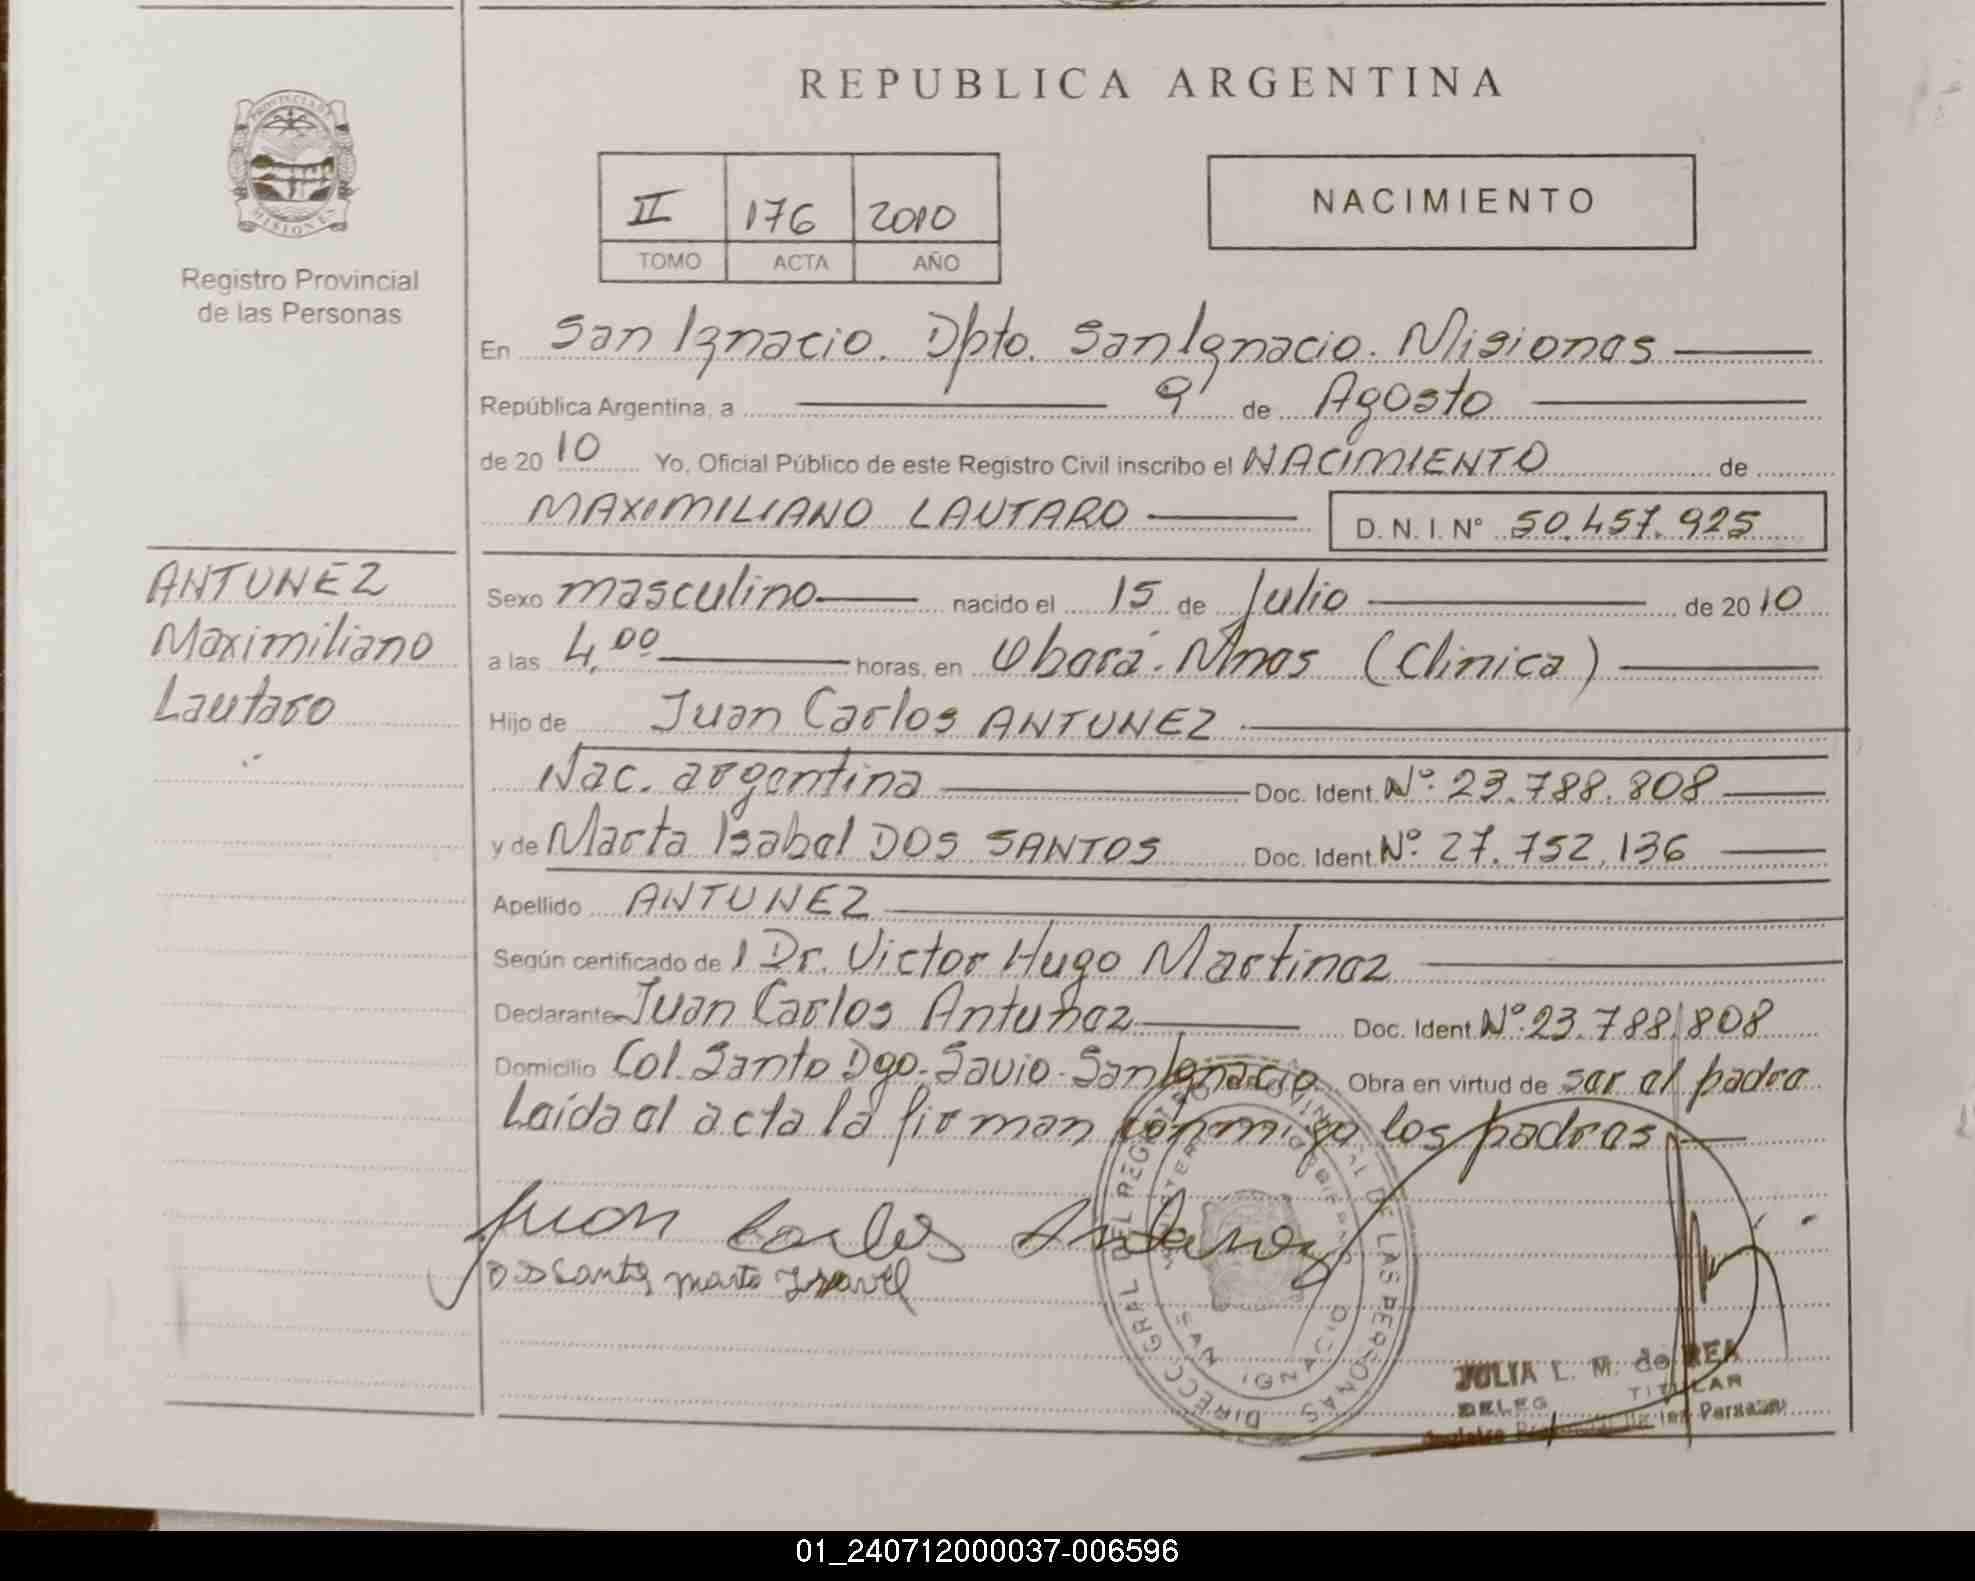 REPUBLICA ARGENTINA
PROVINCIA DE
MISIONES
Registro Provincial
de las Personas
II 176 2010
TOMO ACTA AÑO
NACIMIENTO
En San Ignacio. Dpto. San Ignacio. Misiones
República Argentina, a 9 de Agosto
de 2010 Yo, Oficial Público de este Registro Civil inscribo el NACIMIENTO de
MAXIMILIANO LAUTARO D. N. I. N° 50.457.925
ANTUNEZ
Maximiliano
Lautaro
Sexo masculino nacido el 15 de Julio de 2010
a las 4,00 horas, en Oberá. Mnes (Clinica)
Hijo de Juan Carlos ANTUNEZ
Nac. argentina Doc. Ident. N°: 23.788.808
y de Marta Isabel DOS SANTOS Doc. Ident. N°: 27.752.136
Apellido ANTUNEZ
Según certificado de l Dr. Victor Hugo Martinez
Declarante Juan Carlos Antunez Doc. Ident. N°: 23.788.808
Domicilio Col. Santo Dgo. Savio - San Ignacio Obra en virtud de ser el padre
Leida el acta la firman conmigo los padres
Juan Carlos Antunez
DOSSantos Marta Isavel
DIRECC. GRAL. DEL REGISTRO PROVINCIAL DE LAS PERSONAS
SAN IGNACIO
JULIA L. M. de REA
DELEG TITULAR
Registro de las Personas
01_240712000037-006596